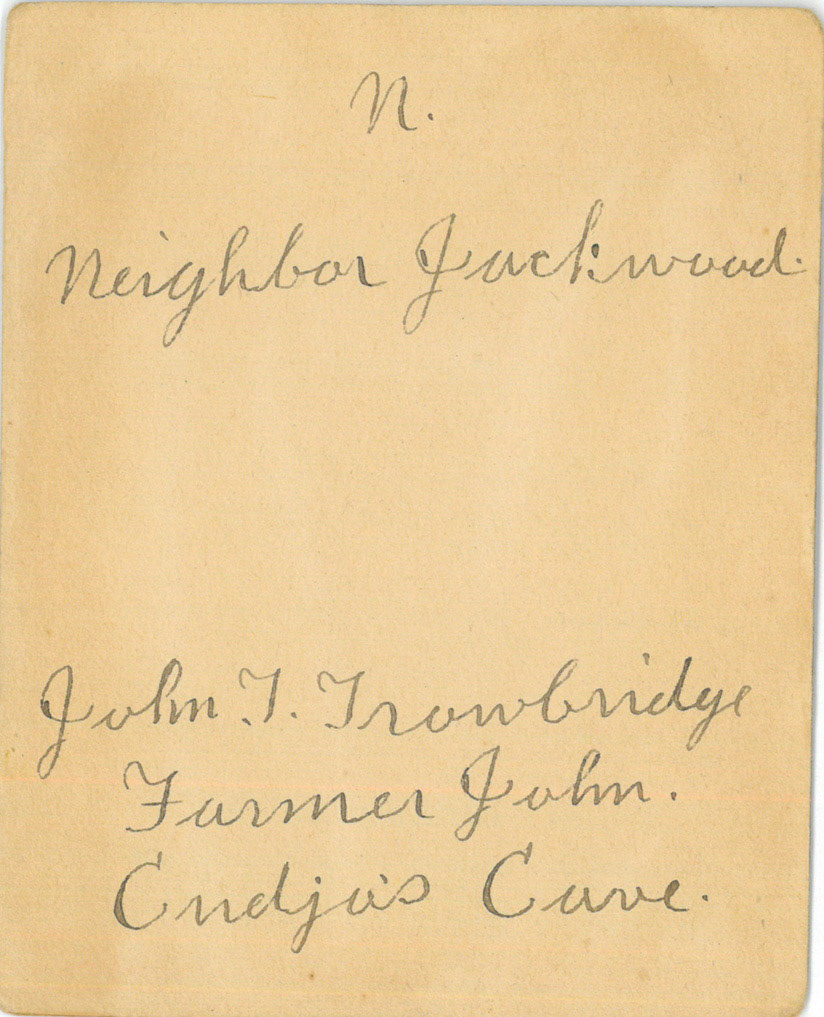 N.
Neighbor Jackwood.
John T. Trowbridge
Farmer John.
Cudjo's Cave.